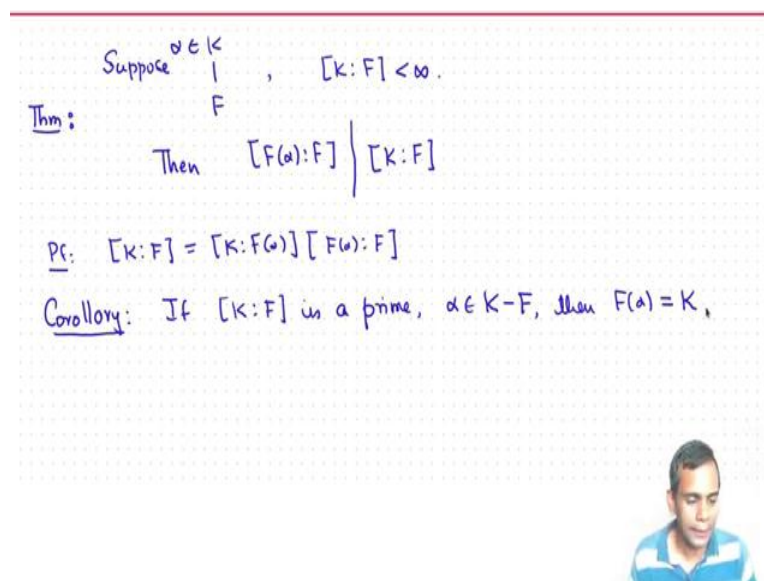 Suppose α ∈ K
|
F , [K:F] < ∞.
Thm:
Then [F(α):F] | [K:F]
Pf: [K:F] = [K:F(α)] [F(α):F]
Corollory: If [K:F] is a prime, α ∈ K-F, then F(α) = K.